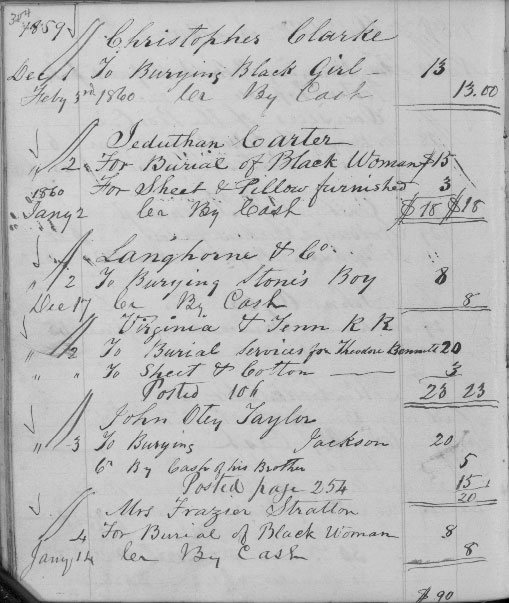 304
1859
Christopher Clarke
Dec 1 To Burying Black Girl — 13
Feby 3rd 1860 Cr By Cash 13.00
Jeduthan Carter
" 2 For Burial of Black Woman $15
1860 For Sheet & Pillow furnished 3
Jany 2 Cr By Cash $18 $18
Langhorne & Co
" 2 To Burying Stone's Boy 8
Dec 17 Cr By Cash 8
Virginia & Tenn R R
" 2 To Burial Services for Theodore Bennett 20
" " To Sheet & Cotton — 3
Posted 106 23 23
John Otey Taylor
" 3 To Burying Jackson 20
Cr By Cash of his Brother 5
Posted page 254 15
20
Mrs Frazier Stratton
" 4 For Burial of Black Woman 8
Jany 14 Cr By Cash 8
$ 90